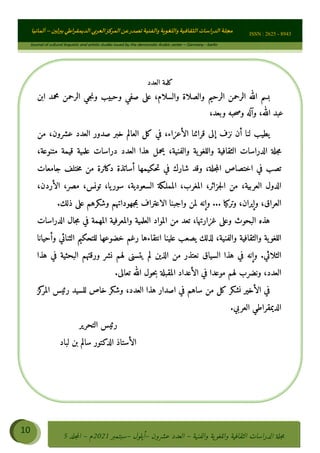 مجلة الدراسات الثقافية واللغوية والفنية تصدر عن المركز العربي الديمقراطي ببرلين – ألمانيا
ISSN : 2625 - 8943
Journal of cultural linguistic and artistic studies issued by the democratic Arabic center – Germany - berlin
كلمة العدد
بسم الله الرحمن الرحيم والصلاة والسلام، على صفي وحبيب ونجي الرحمن محمد ابن
عبد الله، وآله وصحبه وبعد،
يطيب لنا أن نزف إلى قرائنا الأعزاء، في كل العالم خبر صدور العدد عشرون، من
مجلة الدراسات الثقافية واللغوية والفنية، يحمل هذا العدد دراسات علمية قيمة متنوعة،
تصب في اختصاص المجلة، وقد شارك في تحكيمها أساتذة دكاترة من مختلف جامعات
الدول العربية، من الجزائر، المغرب، المملكة السعودية، سوريا، تونس، مصر، الأردن،
العراق، وإيران، وتركيا ... وإنه لمن واجبنا الاعتراف بمجهوداتهم وشكرهم على ذلك.
هذه البحوث وعلى غزارتها، تعد من المواد العلمية والمعرفية المهمة في مجال الدراسات
اللغوية والثقافية والفنية، لذلك يصعب علينا انتقاءها رغم خضوعها للتحكيم الثنائي وأحيانا
الثلاثي. وإنه في هذا السياق نعتذر من الذين لم يتسنى لهم نشر ورقتهم البحثية في هذا
العدد، ونضرب لهم موعدا في الأعداد المقبلة بحول الله تعالى.
في الأخير نشكر كل من ساهم في اصدار هذا العدد، وشكر خاص للسيد رئيس المركز
الديمقراطي العربي.
رئيس التحرير
الأستاذ الدكتور سالم بن لباد
10
مجلة الدراسات الثقافية واللغوية والفنية – العدد عشرون –أيلول –سبتمبر 2021م – المجلد 5